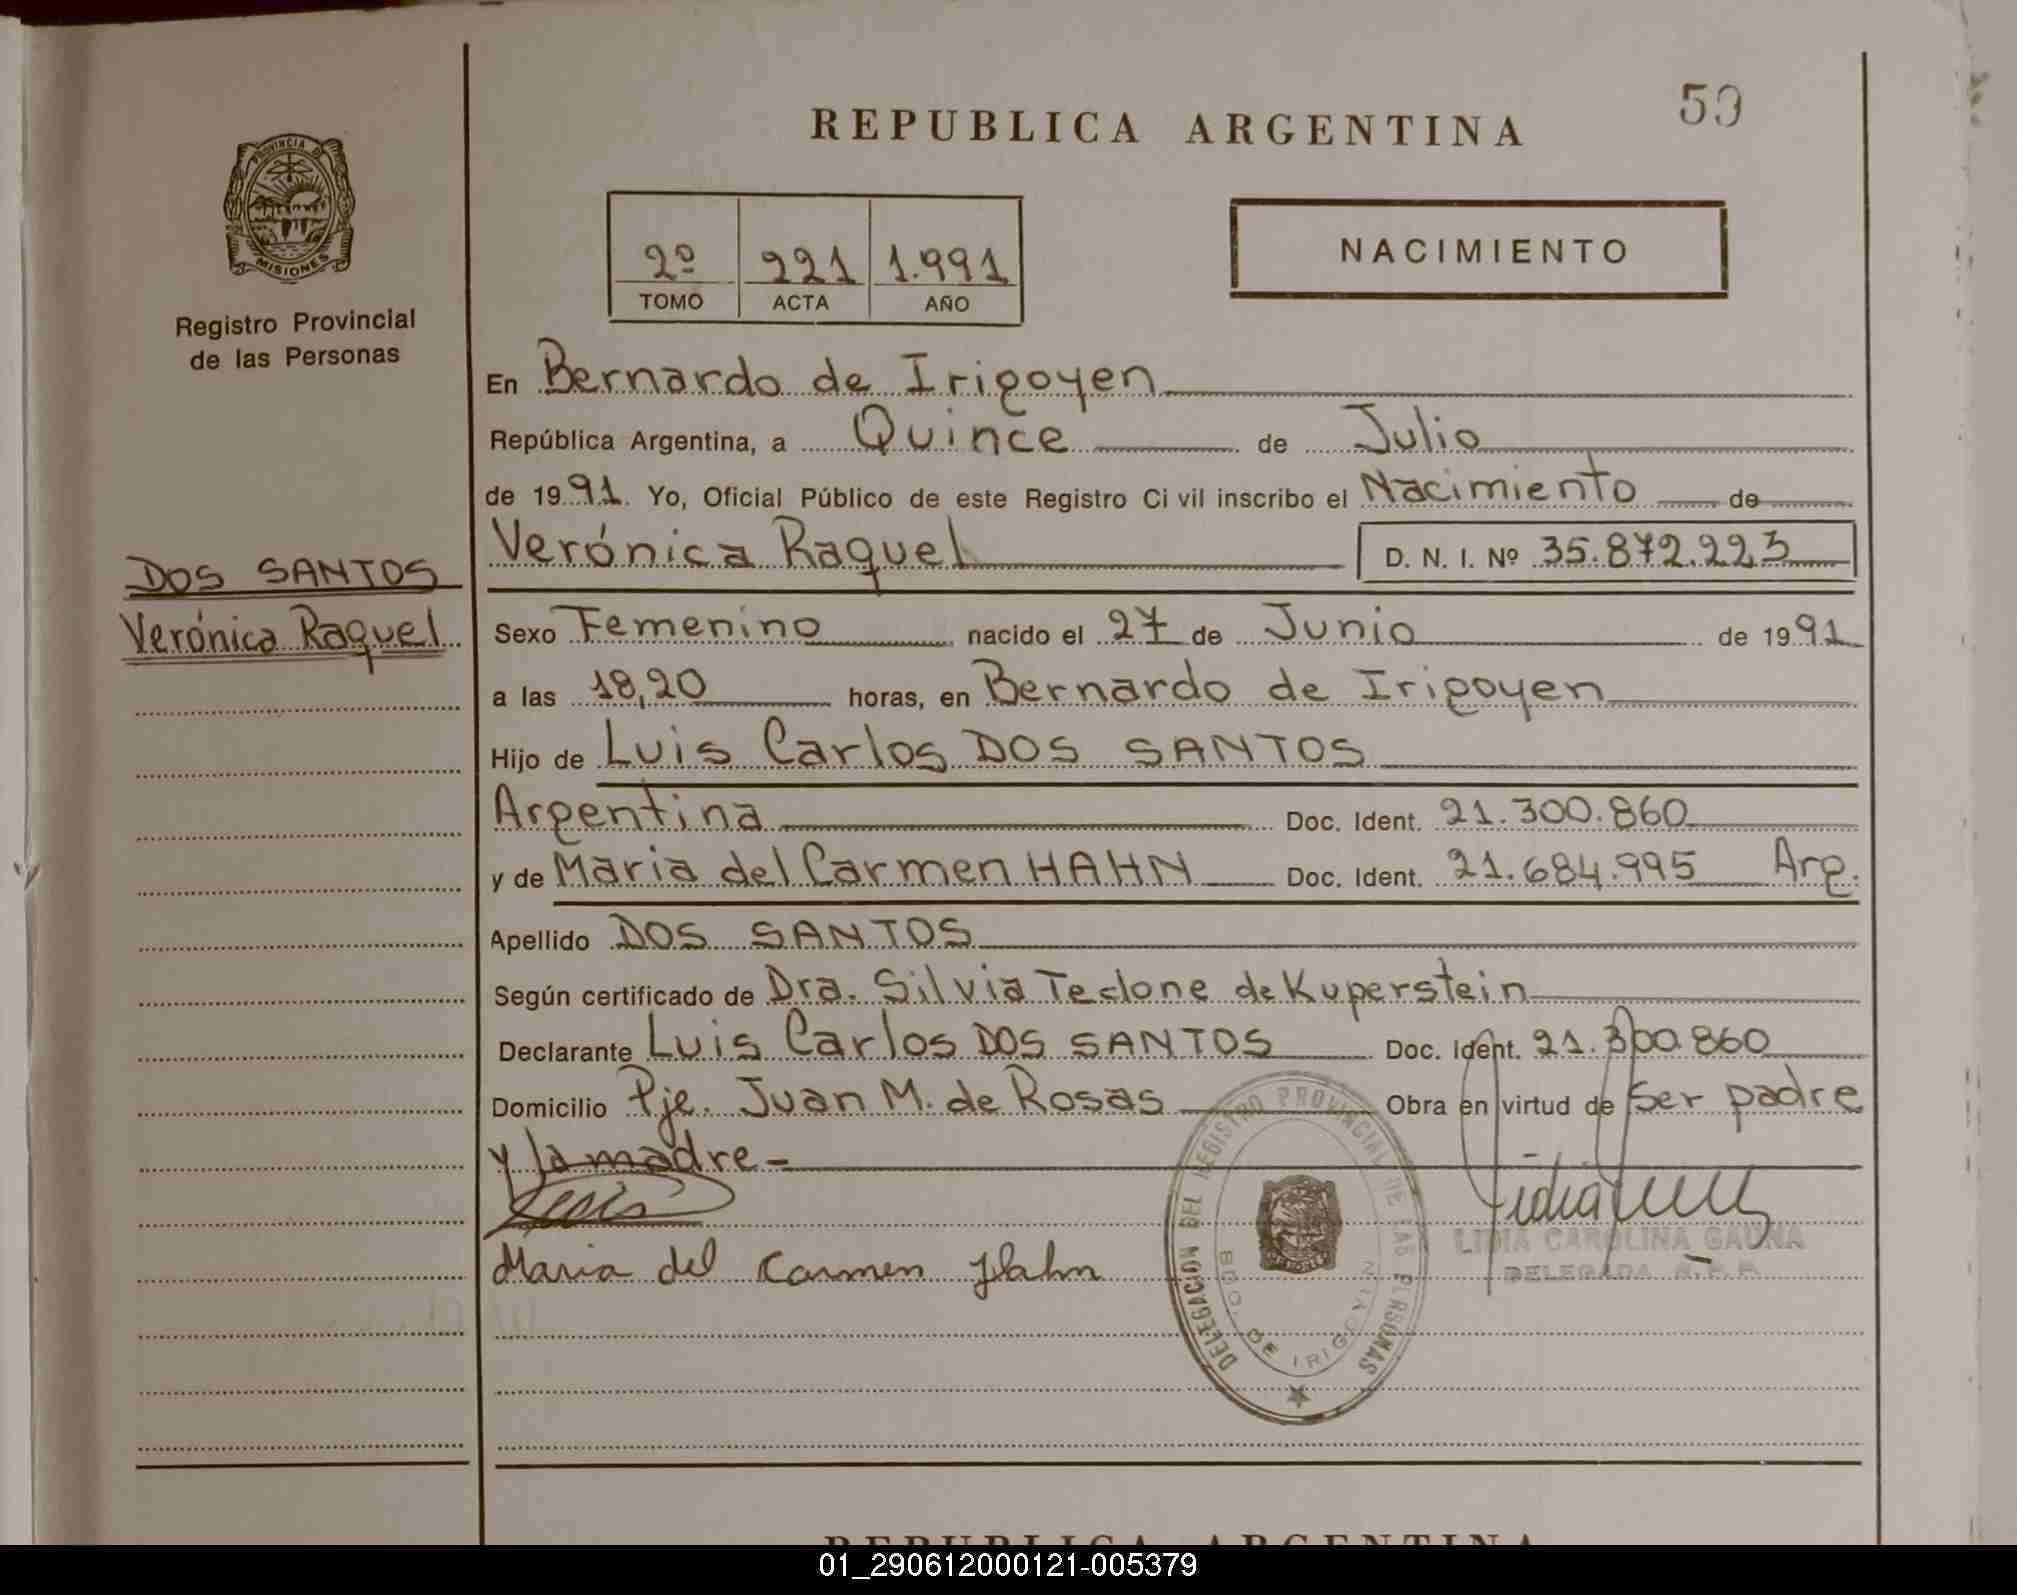 59
REPUBLICA ARGENTINA
PROVINCIA DE
MISIONES
Registro Provincial
de las Personas
2º 221 1.991
TOMO ACTA AÑO
NACIMIENTO
En Bernardo de Irigoyen
República Argentina, a Quince de Julio
de 1991. Yo, Oficial Público de este Registro Civil inscribo el Nacimiento de
Verónica Raquel D. N. I. Nº 35.872.223
DOS SANTOS
Verónica Raquel
Sexo Femenino nacido el 27 de Junio de 1991
a las 18,20 horas, en Bernardo de Irigoyen
Hijo de Luis Carlos DOS SANTOS
Argentina Doc. Ident. 21.300.860
y de Maria del Carmen HAHN Doc. Ident. 21.684.995 Arg.
Apellido DOS SANTOS
Según certificado de Dra. Silvia Teclone de Kuperstein
Declarante Luis Carlos DOS SANTOS Doc. Ident. 21.300.860
Domicilio Pje. Juan M. de Rosas Obra en virtud de ser padre
y la madre -
Maria del Carmen Hahn
DELEGACION DEL REGISTRO PROVINCIAL DE LAS PERSONAS
BDO. DE IRIGOYEN
LIDIA CAROLINA GAUNA
DELEGADA R. P. P.
REPUBLICA ARGENTINA
01_290612000121-005379